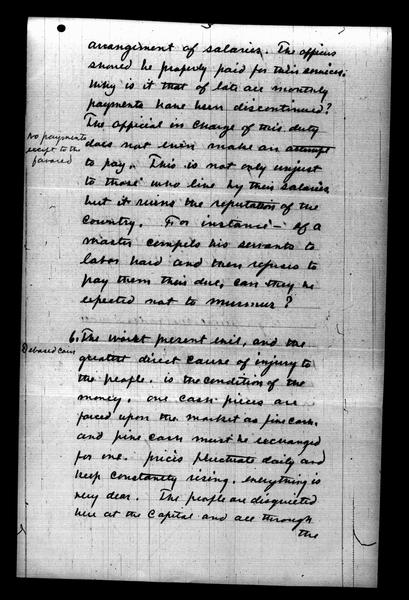 arrangement of salaries. The officers
should be properly paid for their services.
Why is it that of late all monthly
payments have been discontinued?
The official in charge of this duty
does not even make an attempt
No payments
except to the
favored
to pay. This is not only unjust
to those who live by their salaries
but it ruins the reputation of the
country. For instance - if a
master compels his servants to
labor hard and then refuses to
pay them their due, can they be
expected not to murmur?
6. The worst present evil, and the
Debased Coin
greatest direct cause of injury to
the people, is the condition of the
money. One cash pieces are
forced upon the market as five cash,
and five cash must be exchanged
for one. Prices fluctuate daily and
keep constantly rising, everything is
very dear. The people are disquieted
here at the Capital and all through
the